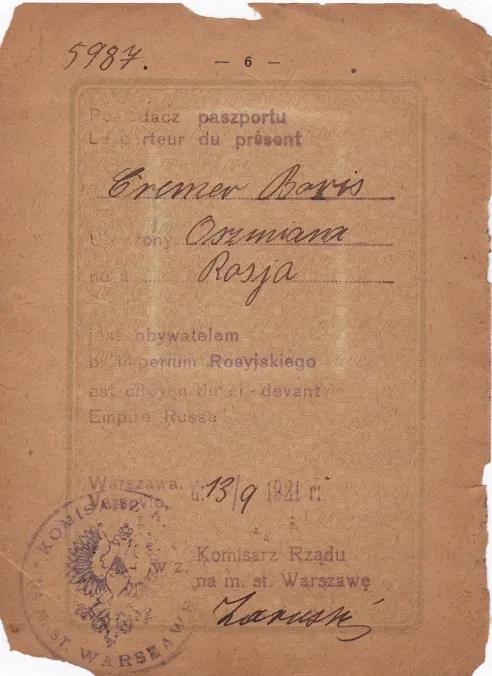 5987.
— 6 —
Posiadacz paszportu
Le porteur du présent
Cremer Boris
Urodzony Oszmiana
Rosja
jest obywatelem
b. Imperium Rosyjskiego
est citoyen du ci-devant
Empire Russe
Warszawa,
Varsovie
d. 13/9 1921 r.
w z. Komisarz Rządu
na m. st. Warszawę
KOMISARZ
NA M. ST. WARSZAWĘ